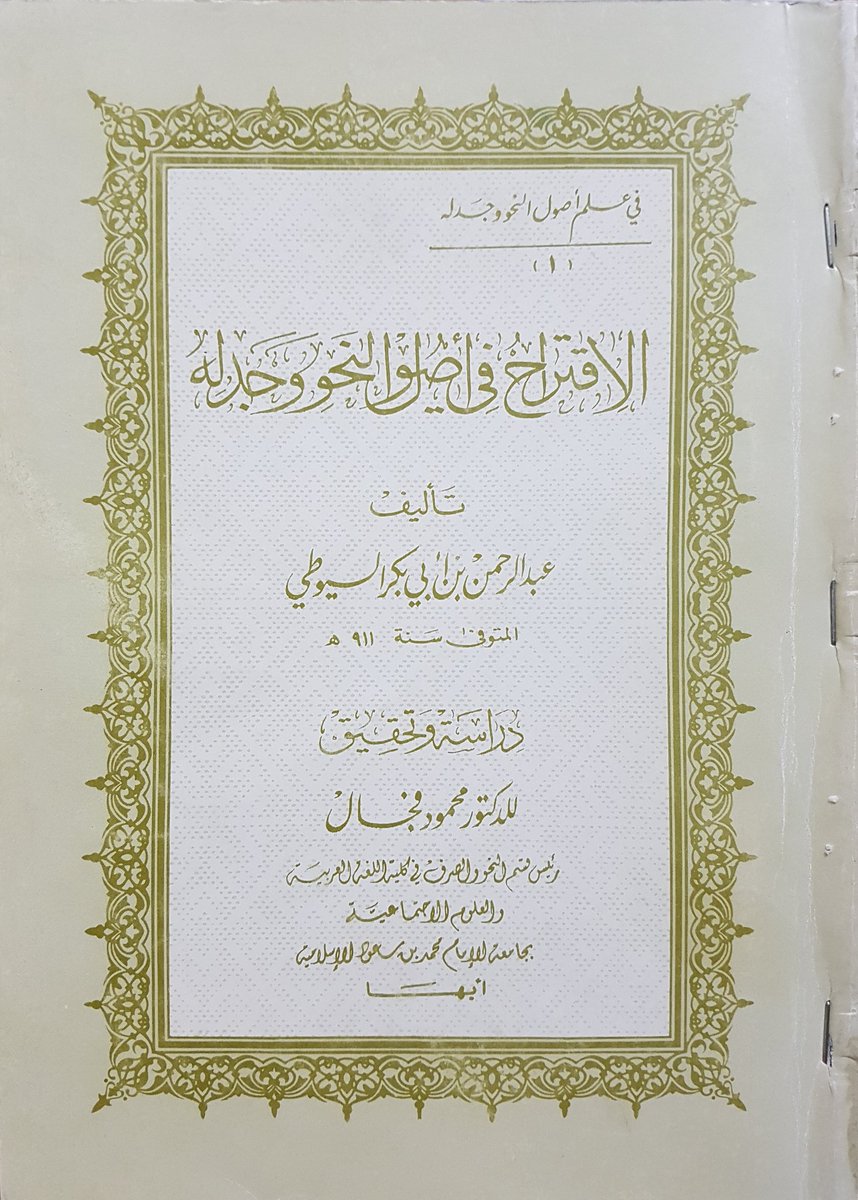 في علم أصول النحو وجدله
(١)
الاِقتراحُ في أُصُولِ النَّحوِ وَجَدَلِه
تَأليفْ
عبد الرحمن بن أبي بكر السيوطي
المتوفىٰ سَنة ٩١١ هـ
دِرَاسَة وَتحقِيق
للدكتور محمود فجال
رئيس قسم النحو والصرف في كلية اللغة العربية
والعلوم الاجتماعيَّة
بجامعة الإمام محمد بن سعود الإسلامية
أبها